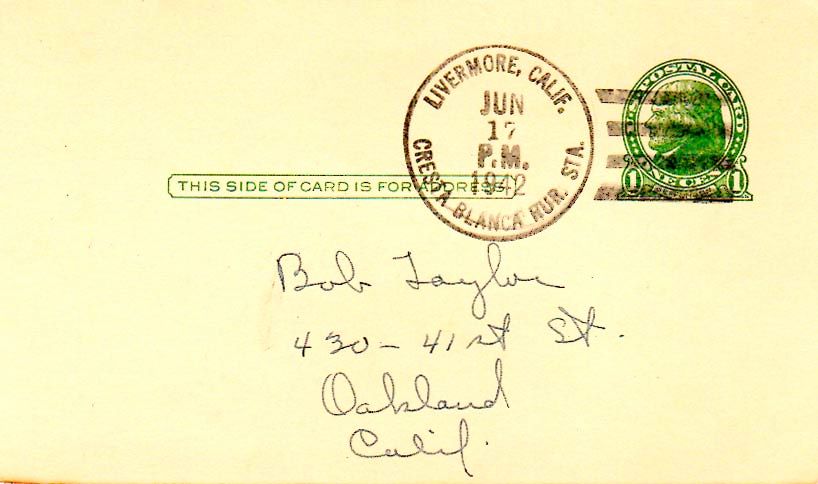 LIVERMORE, CALIF.
JUN
17
P.M.
1942
CRESTA BLANCA RUR. STA.
U.S. POSTAL CARD
1 ONE CENT 1
THIS SIDE OF CARD IS FOR ADDRESS
Bob Taylor
430 - 41st St.
Oakland
Calif.